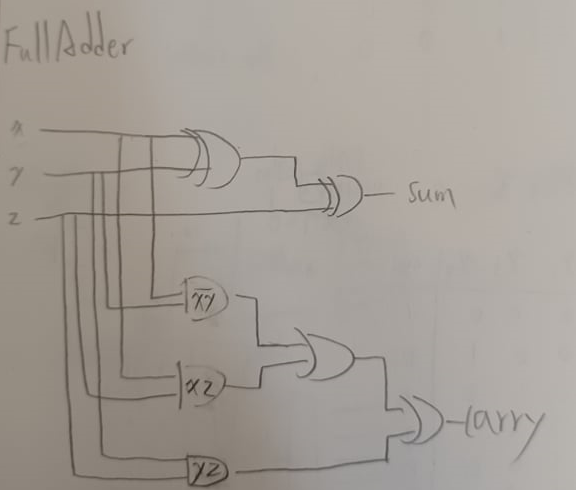 Full Adder
x
y
z
Sum
x̅y
xz
yz
Carry